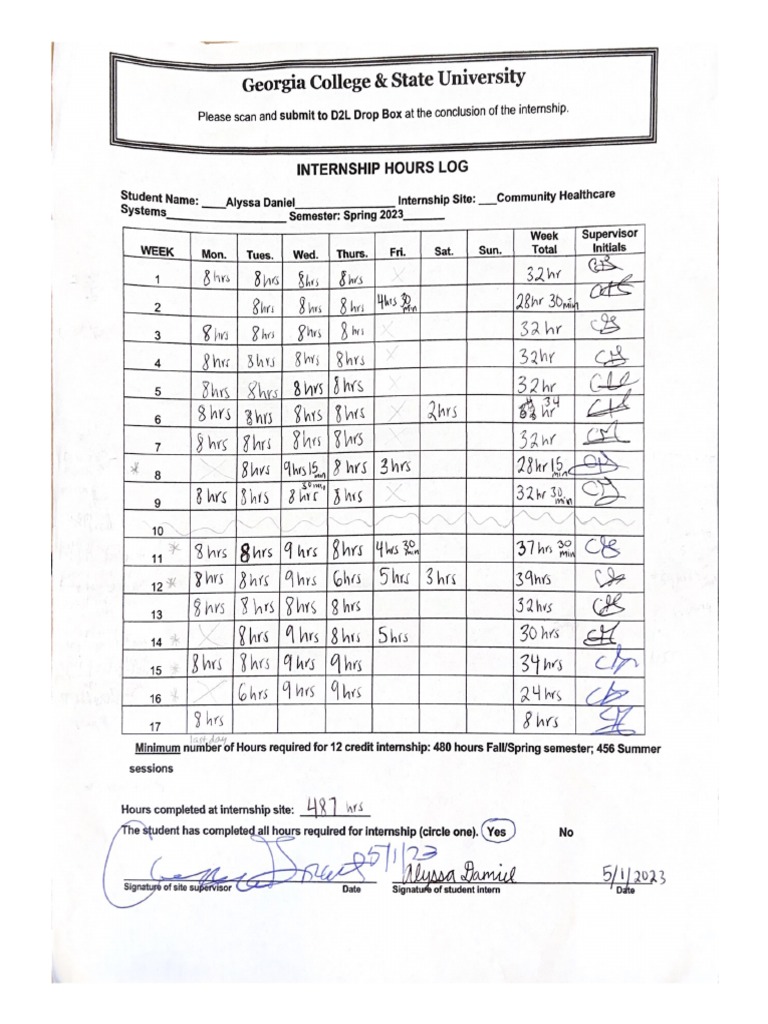 Georgia College & State University
Please scan and submit to D2L Drop Box at the conclusion of the internship.
INTERNSHIP HOURS LOG
Student Name: ____Alyssa Daniel________________ Internship Site: ___Community Healthcare
Systems___________________ Semester: Spring 2023_______
WEEK Mon. Tues. Wed. Thurs. Fri. Sat. Sun. Week Total Supervisor Initials
1 8hrs 8hrs 8hrs 8hrs X 32hr
2 8hrs 8hrs 8hrs 4hrs 30 min 28hr 30min
3 8hrs 8hrs 8hrs 8hrs X 32hr
4 8hrs 8hrs 8hrs 8hrs X 32hr
5 8hrs 8hrs 8hrs 8hrs X 32hr
6 8hrs 8hrs 8hrs 8hrs X 2hrs 34 hr
7 8hrs 8hrs 8hrs 8hrs X 32hr
* 8 X 8hrs 9hrs15 min 8hrs 3hrs 28hr 15 min
9 8hrs 8hrs 8hrs 30min 8hrs X 32hr 30 min
10
11 * 8hrs 8hrs 9hrs 8hrs 4hrs 30 min 37hrs 30 min
12 * 8hrs 8hrs 9hrs 6hrs 5hrs 3hrs 39hrs
13 8hrs 8hrs 8hrs 8hrs 32hrs
14 * X 8hrs 9hrs 8hrs 5hrs 30hrs
15 * 8hrs 8hrs 9hrs 9hrs 34hrs
16 * X 6hrs 9hrs 9hrs 24hrs
17 8hrs 8hrs
last day
Minimum number of Hours required for 12 credit internship: 480 hours Fall/Spring semester; 456 Summer
sessions
Hours completed at internship site: 487 hrs
The student has completed all hours required for internship (circle one). Yes No
5/1/23 Alyssa Daniel 5/1/2023
Signature of site supervisor Date Signature of student intern Date